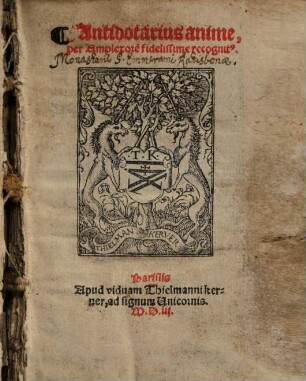 Antidotarius anime,
per Amplexorē fidelissime recognitꝰ.
Monasterii S. Emmerami Ratisbonæ.
T. K
THIELMAN KERVER
Parisiis
Apud viduam Thielmanni ker-
uer, ad signum Unicornis.
M. D. lii.